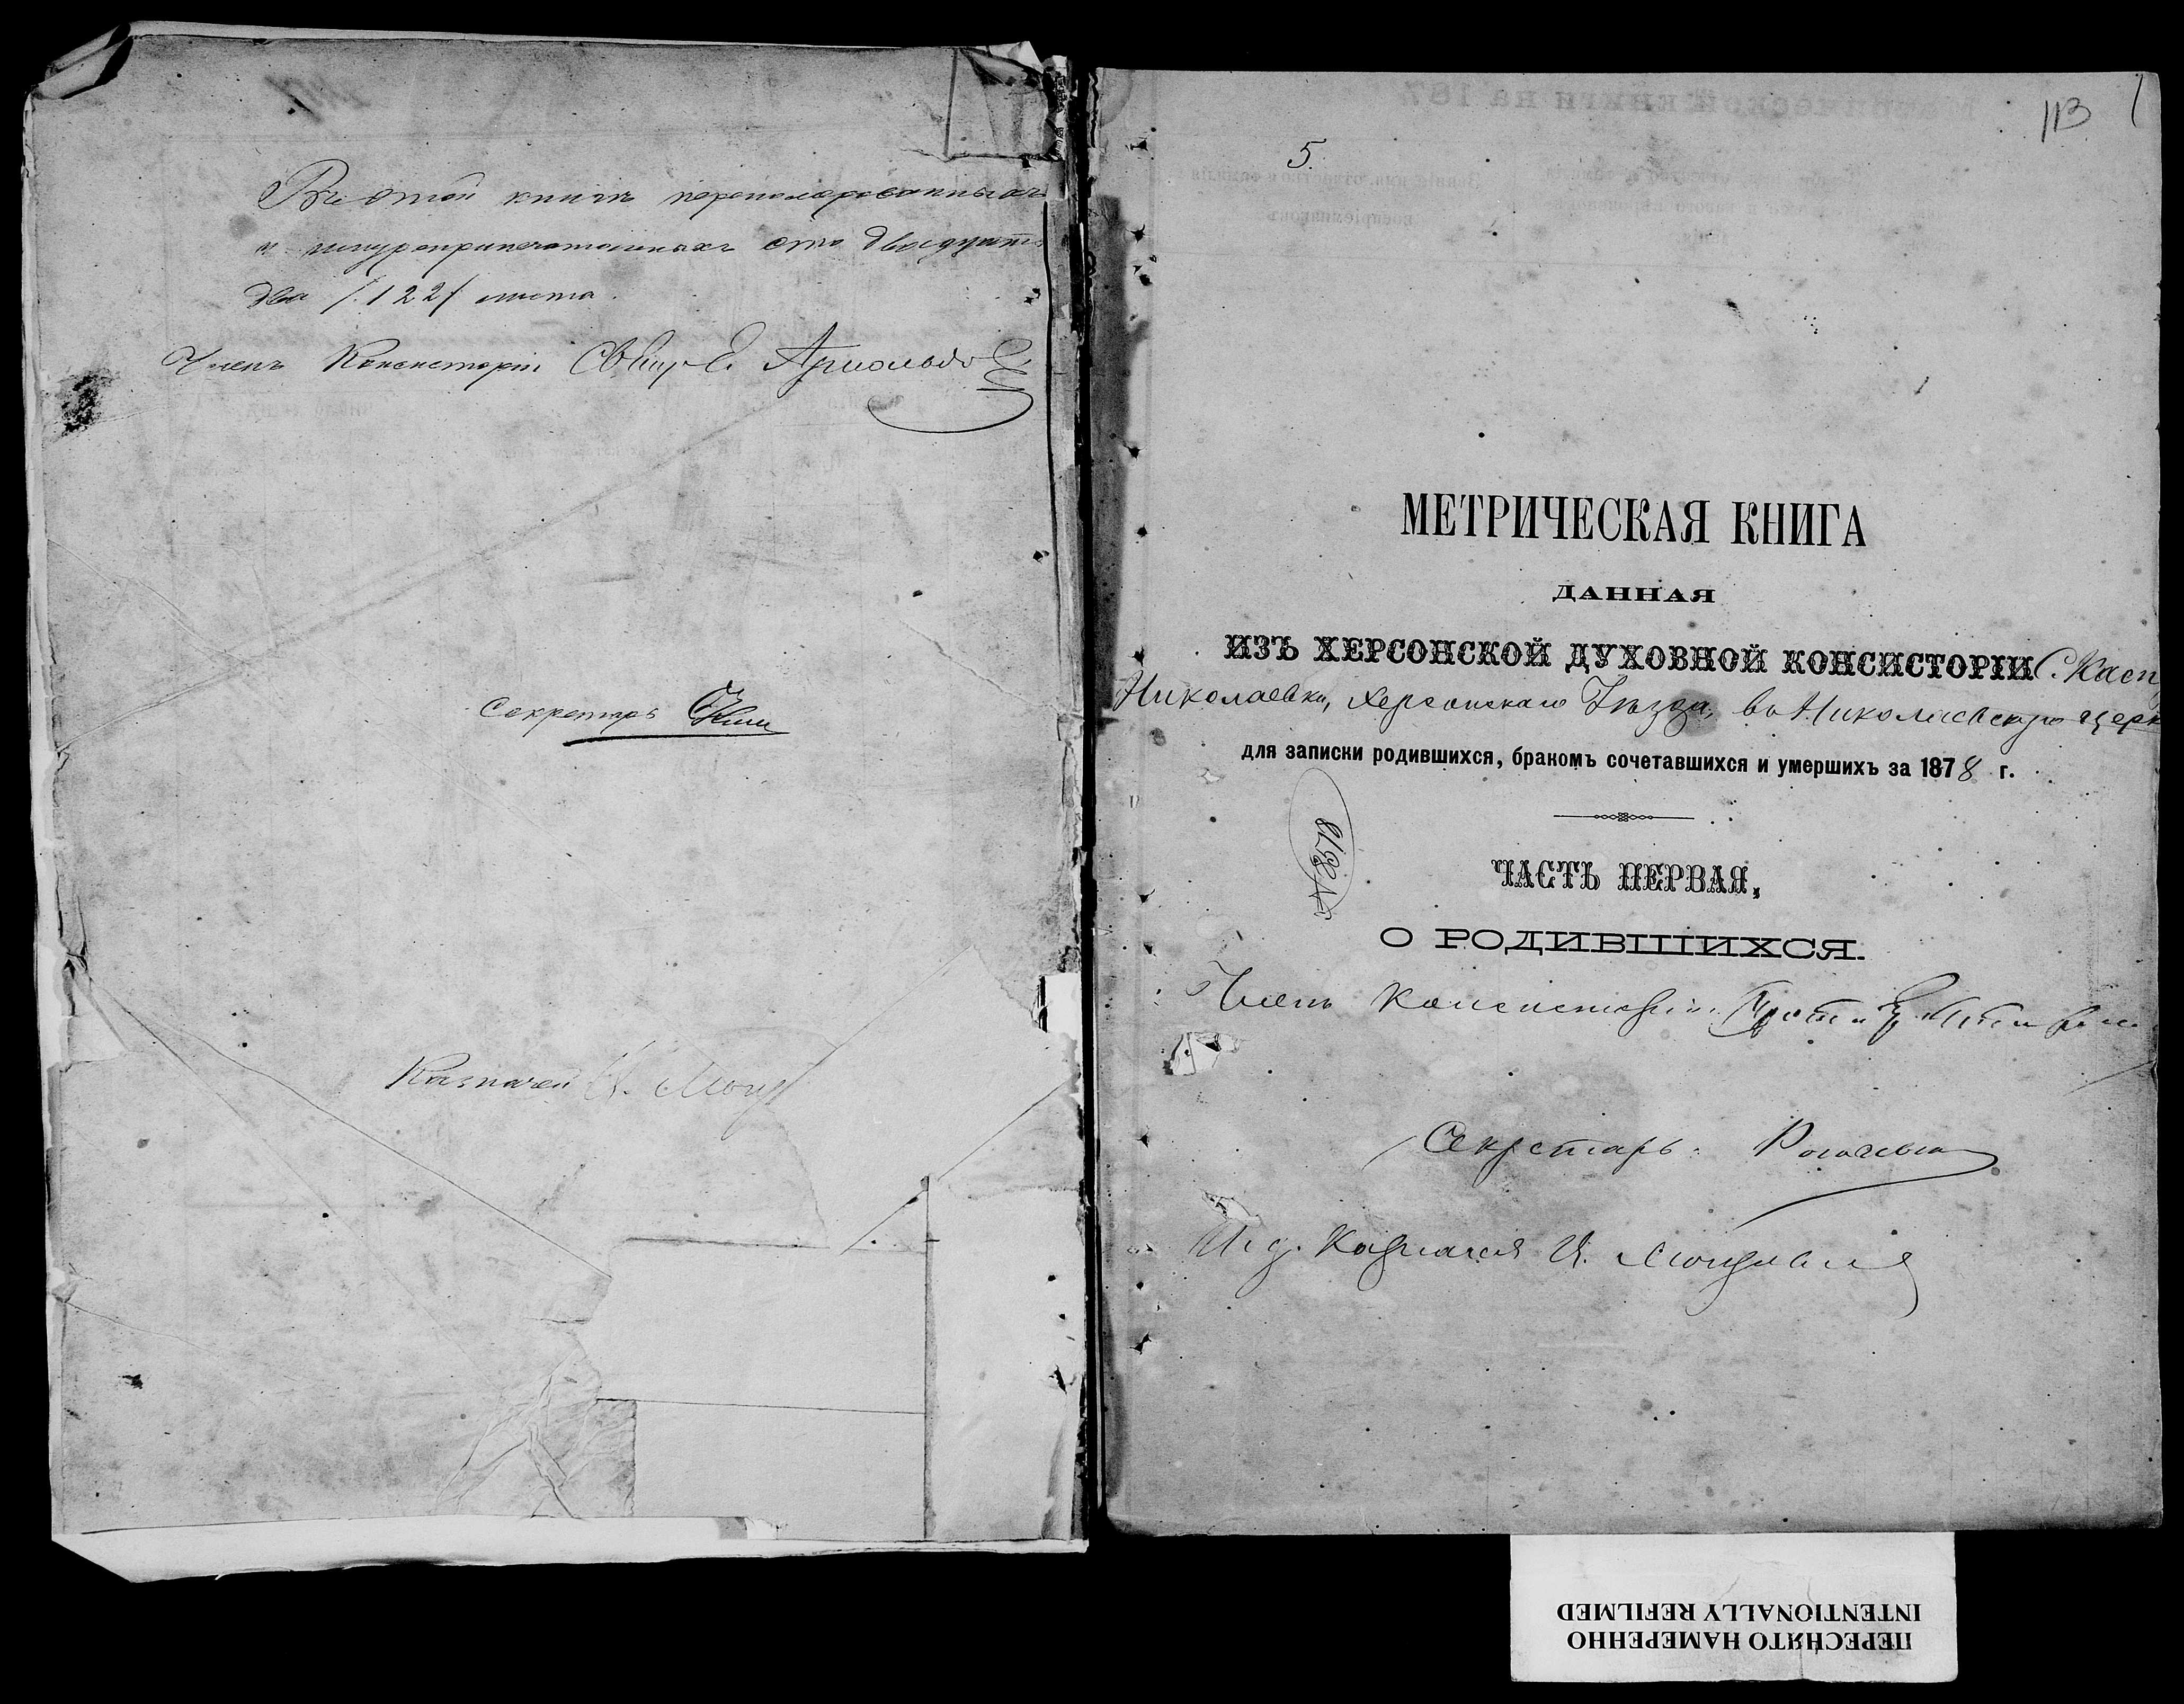 Въ этой книгѣ перенумерованныхъ
и шнуроприпечатанныхъ сто двадцать
два /122/ листа.
Членъ Консисторіи Свящ. Арнольдо
Секретарь
Казначей
113
5.
МЕТРИЧЕСКАЯ КНИГА
ДАННАЯ
ИЗЪ ХЕРСОНСКОЙ ДУХОВНОЙ КОНСИСТОРІИ С. Касп
Николаевки, Херсонскаго Уѣзда, въ Николаевскую церк
для записки родившихся, бракомъ сочетавшихся и умершихъ за 1878 г.
ЧАСТЬ ПЕРВАЯ,
О РОДИВШИХСЯ.
Членъ Консисторіи
Секретарь
Казначея И.
ПЕРЕСНЯТО НАМЕРЕННО
INTENTIONALLY REFILMED